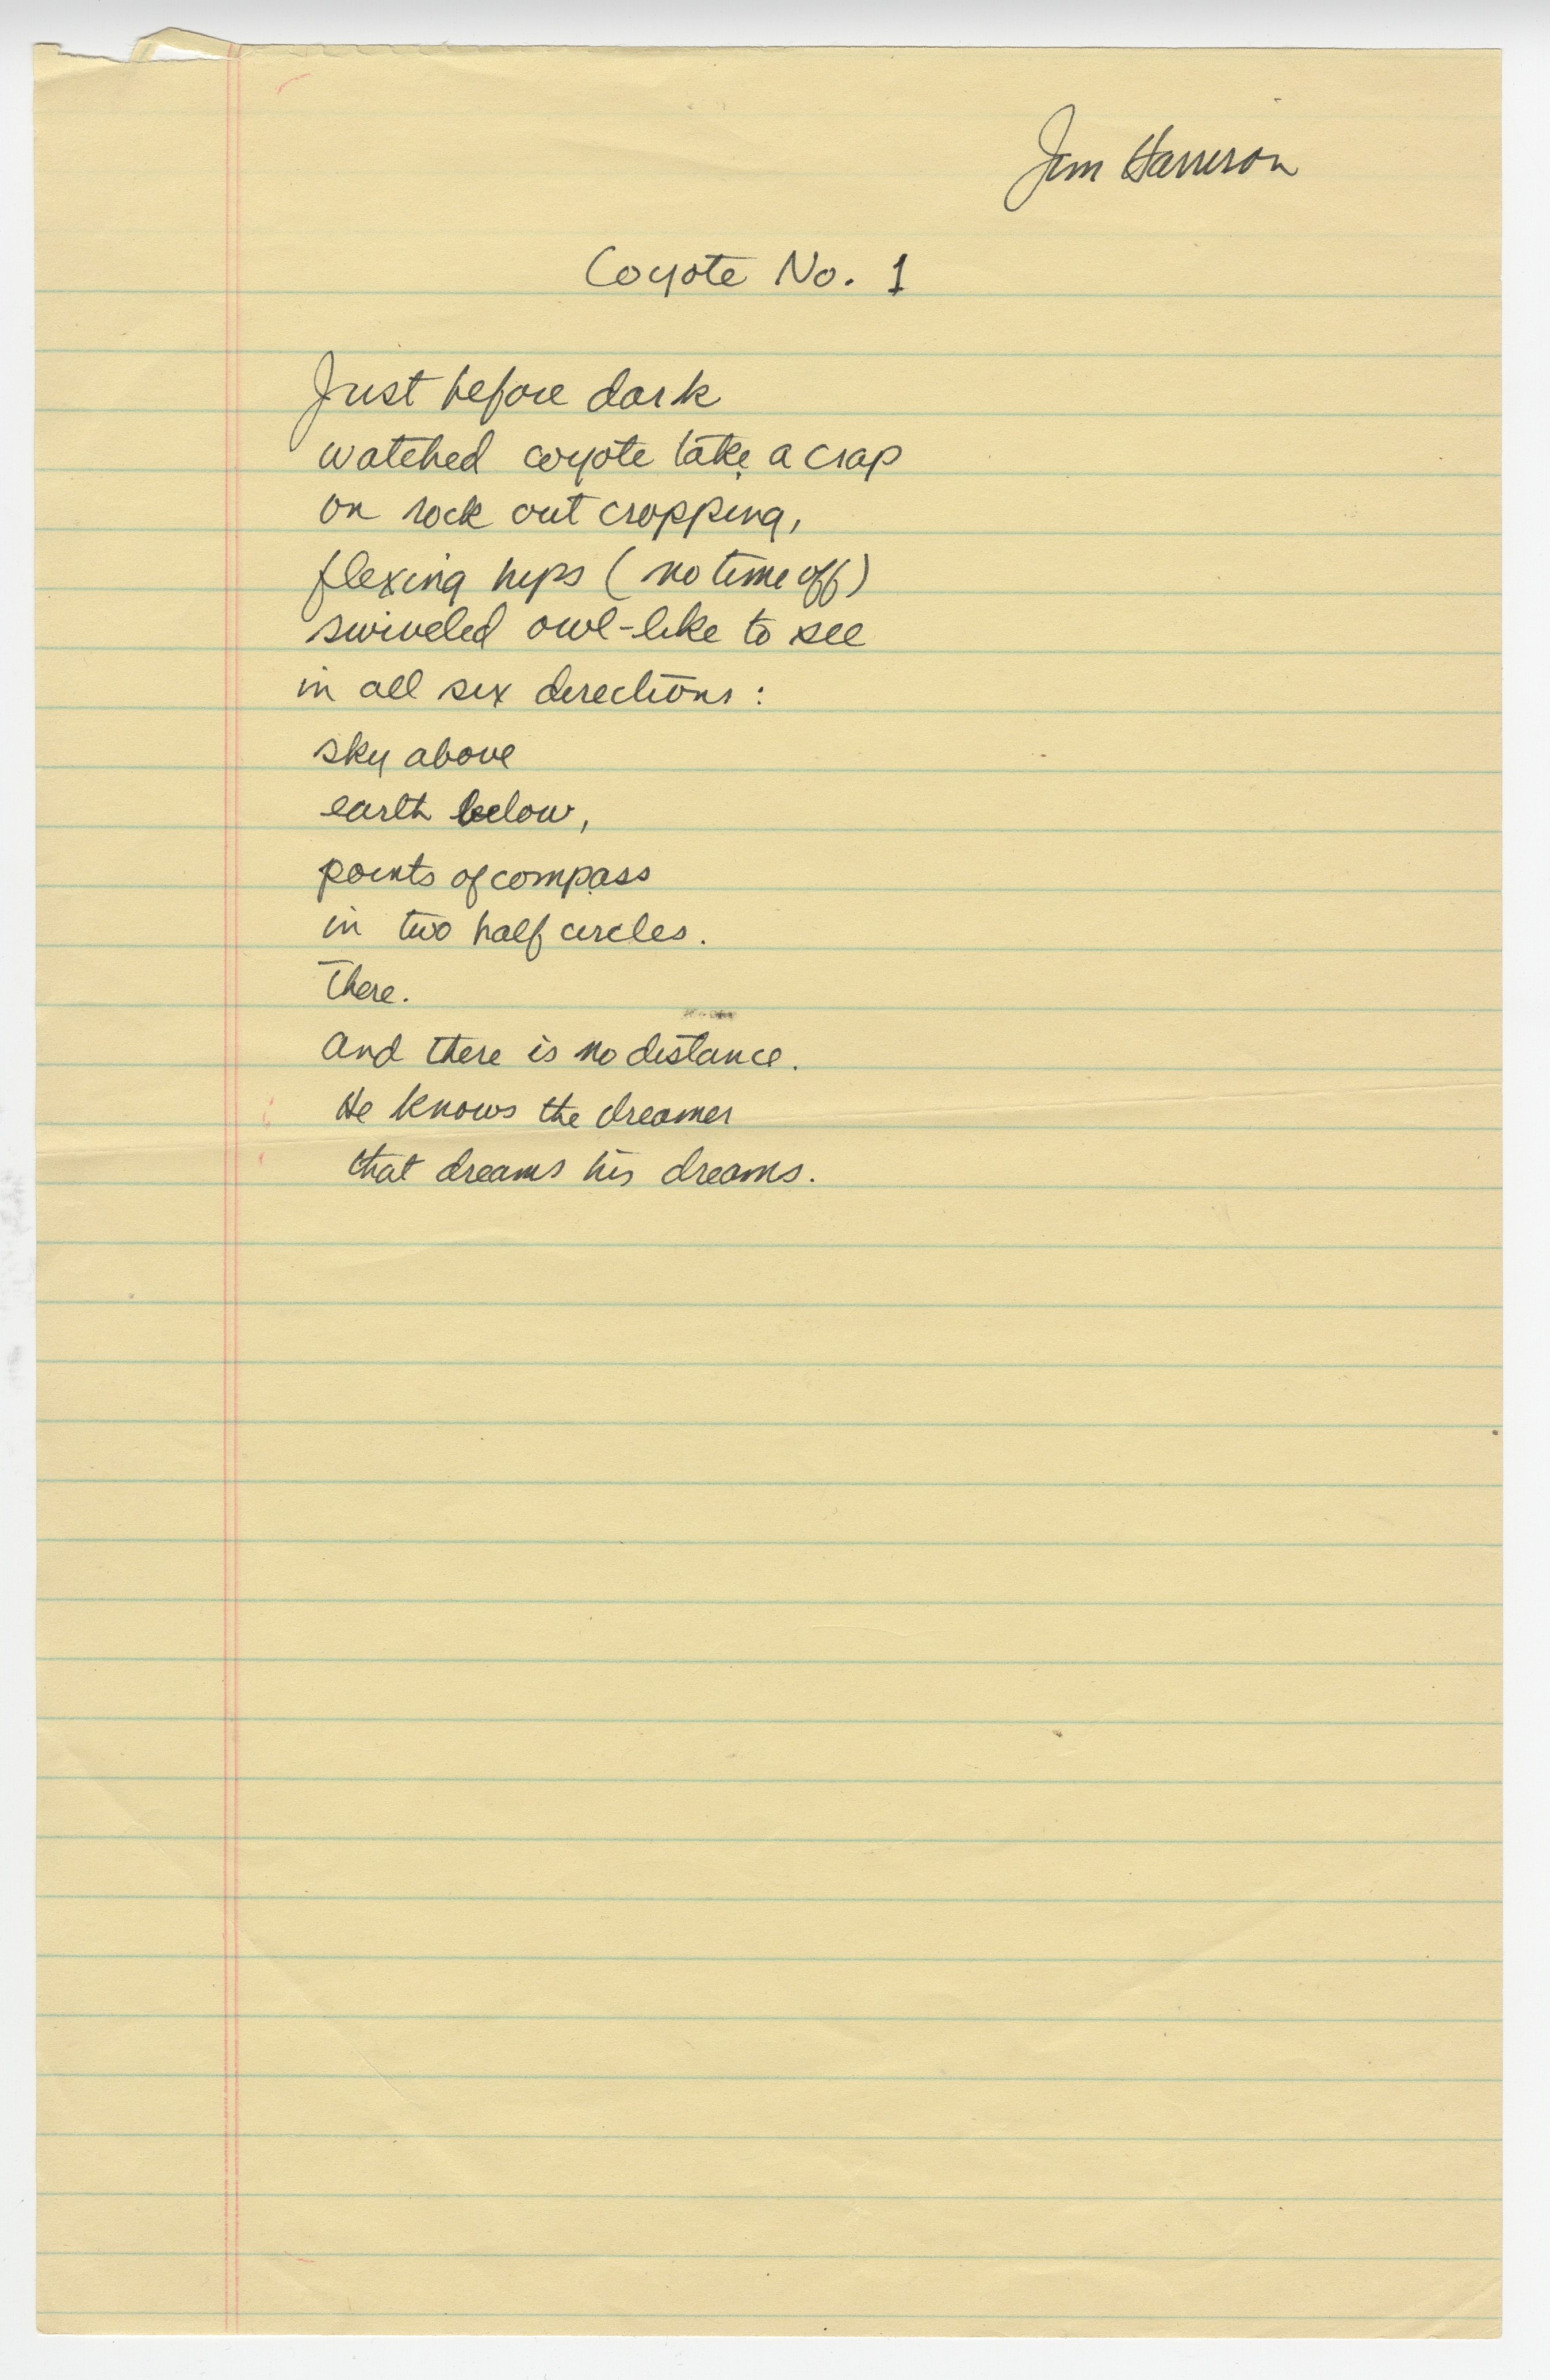 Jim Harrison
Coyote No. 1
Just before dark
watched coyote take a crap
on rock out cropping,
flexing hips (no time off)
swiveled owl-like to see
in all six directions:
sky above
earth below,
points of compass
in two half circles.
There.
And there is no distance.
He knows the dreamer
that dreams his dreams.